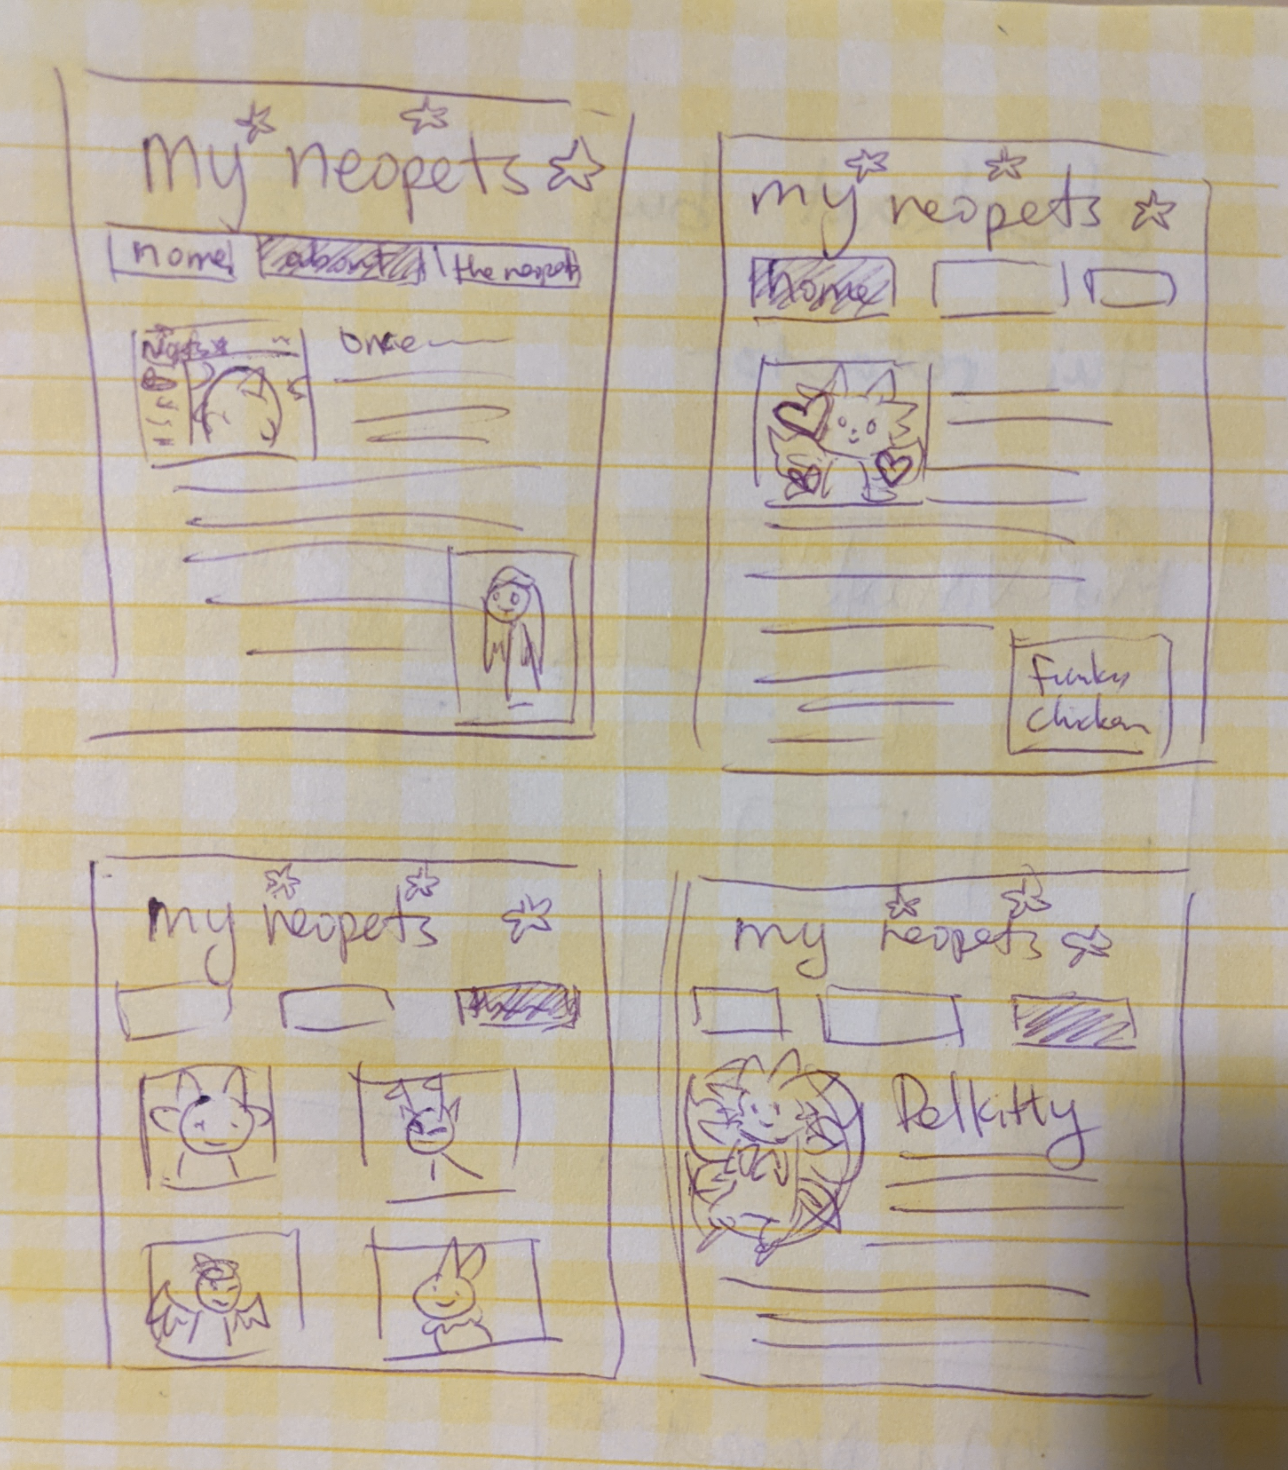 my neopets
home about the neopets
once
my neopets
home
Funky
Chicken
my neopets
my neopets
Delkitty